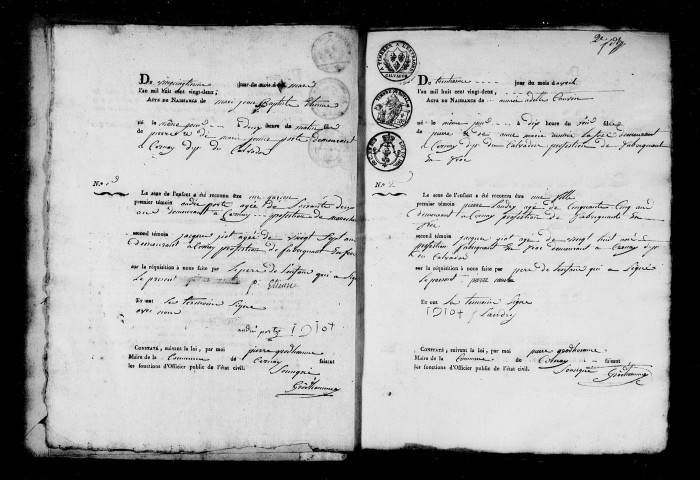 Du vingt neuvieme jour du mois de mars
l'an mil huit cent vingt-deux,
ACTE DE NAISSANCE de jean Baptiste Etienne
né le même jour deux heure du matin fils
de pierre et de marie jeanne porte demeurant
à Cernay dpt du Calvador
N.º 3
Le sexe de l'enfant a été reconnu être un garçon
premier témoin andré porte agée de Soixante deux
ans demeurant à Cernay profession de
second témoin jacques jiot agée de vingt Sept ans
demeurant a Cernay profession de fabriquant En froc
sur la réquisition à nous faite par le pere de lenfant qui a Signé
Le present
p. Etienne
Et ont les temoins Signé
avec nous
andré porte JDIOT
CONSTATÉ, suivant la loi, par moi pierre grodhomme
Maire de la Commune de Cernay faisant
les fonctions d'Officier public de l'état civil. Soussigné
Grodhomme
TIMBRE A L'EXTRAORD.
CALVADOS
2e
Du trentieme jour du mois d'avril
l'an mil huit cent vingt-deux,
ACTE DE NAISSANCE de
né le même jour dix heure du soir fille
de pierre et de anne marie demeurant
à Cernay dpt du Calvador profession de fabriquant
En froc
N.º 4
Le sexe de l'enfant a été reconnu être une fille
premier témoin pierre Landry agée de Cinquante Cinq ans
demeurant a Cernay profession de fabriquant En
froc
second témoin jacques jiot agée de vingt huit ans
profession fabriquant En froc demeurant a Cernay dpt
du Calvador
sur la réquisition à nous faite par le pere de lenfant qui a Signé
Le present pierre
Et ont les temoins Signé
JDIOT p Landry
CONSTATÉ, suivant la loi, par moi pierre grodhomme
Maire de la Commune de Cernay faisant
les fonctions d'Officier public de l'état civil. Soussigné
Grodhomme